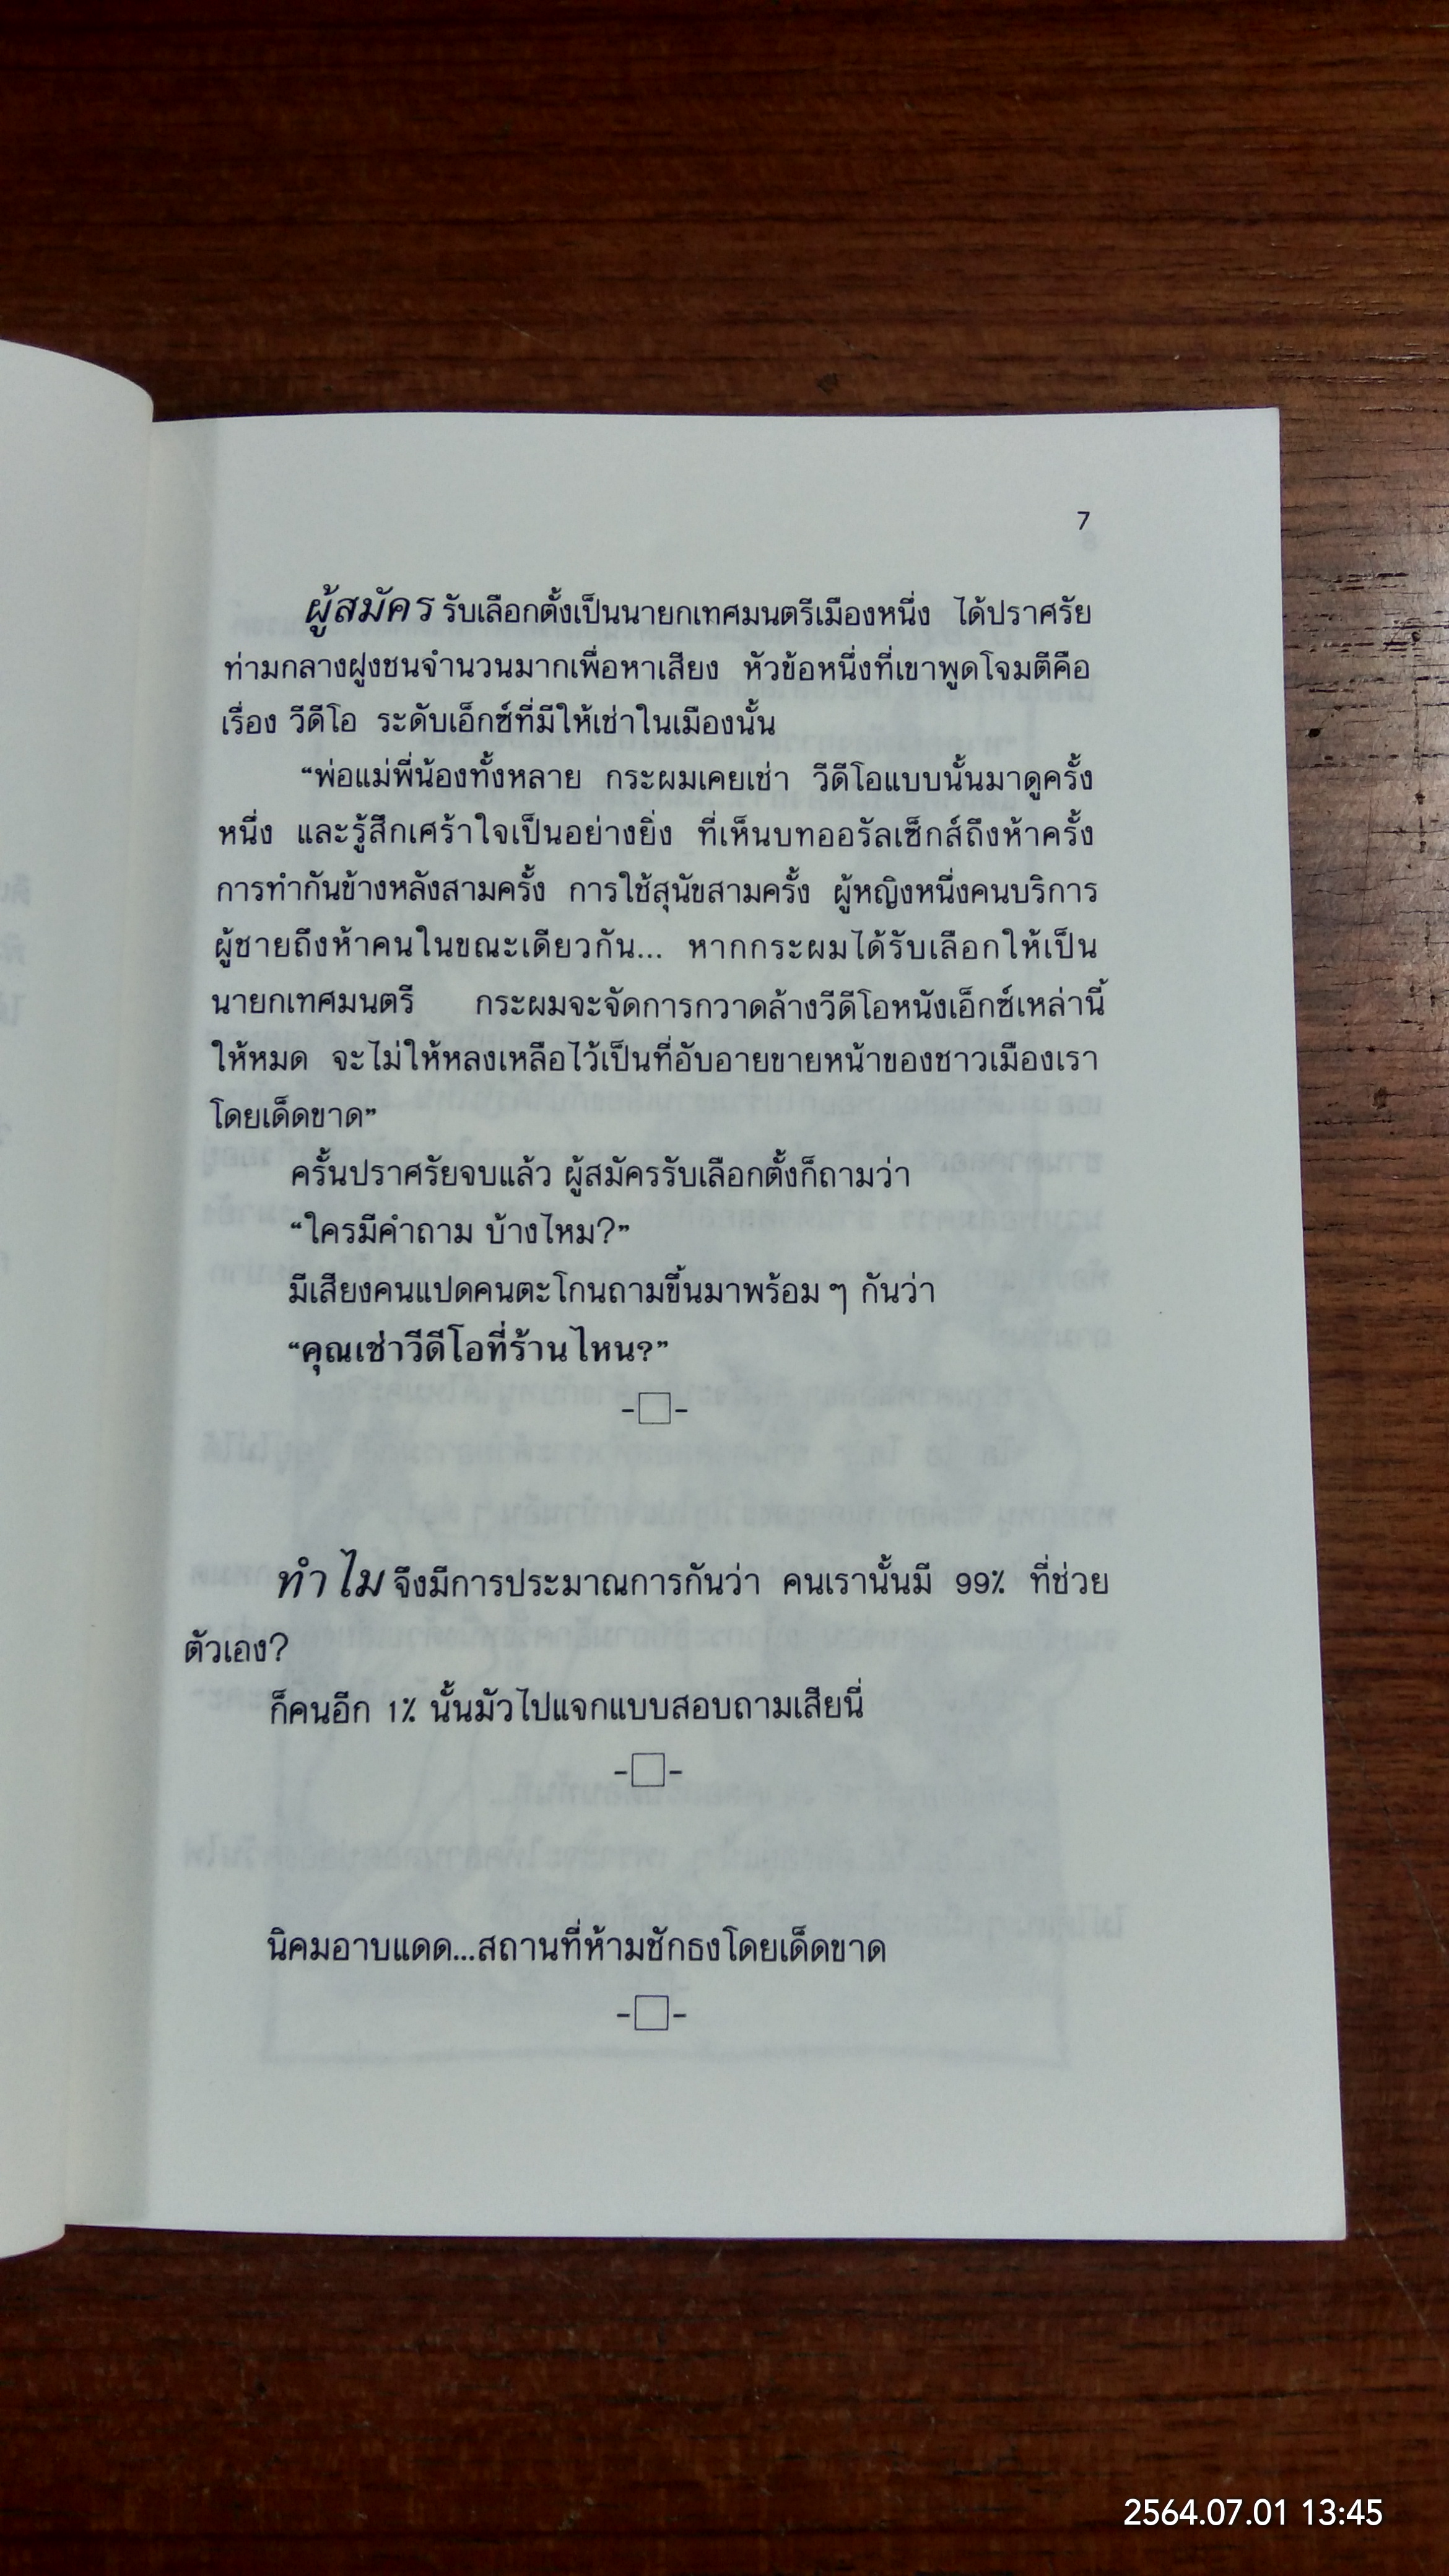 7
ผู้สมัคร รับเลือกตั้งเป็นนายกเทศมนตรีเมืองหนึ่ง ได้ปราศรัย
ท่ามกลางฝูงชนจำนวนมากเพื่อหาเสียง หัวข้อหนึ่งที่เขาพูดโจมตีคือ
เรื่อง วีดีโอ ระดับเอ็กซ์ที่มีให้เช่าในเมืองนั้น
“พ่อแม่พี่น้องทั้งหลาย กระผมเคยเช่า วีดีโอแบบนั้นมาดูครั้ง
หนึ่ง และรู้สึกเศร้าใจเป็นอย่างยิ่ง ที่เห็นบทออรัลเซ็กส์ถึงห้าครั้ง
การทำกันข้างหลังสามครั้ง การใช้สุนัขสามครั้ง ผู้หญิงหนึ่งคนบริการ
ผู้ชายถึงห้าคนในขณะเดียวกัน... หากกระผมได้รับเลือกให้เป็น
นายกเทศมนตรี กระผมจะจัดการกวาดล้างวีดีโอหนังเอ็กซ์เหล่านี้
ให้หมด จะไม่ให้หลงเหลือไว้เป็นที่อับอายขายหน้าของชาวเมืองเรา
โดยเด็ดขาด”
ครั้นปราศรัยจบแล้ว ผู้สมัครรับเลือกตั้งก็ถามว่า
“ใครมีคำถาม บ้างไหม?”
มีเสียงคนแปดคนตะโกนถามขึ้นมาพร้อม ๆ กันว่า
“คุณเช่าวีดีโอที่ร้านไหน?”
-□-
ทำไม จึงมีการประมาณการกันว่า คนเรานั้นมี 99% ที่ช่วย
ตัวเอง?
ก็คนอีก 1% นั้นมัวไปแจกแบบสอบถามเสียนี่
-□-
นิคมอาบแดด...สถานที่ห้ามชักธงโดยเด็ดขาด
-□-
2564.07.01 13:45